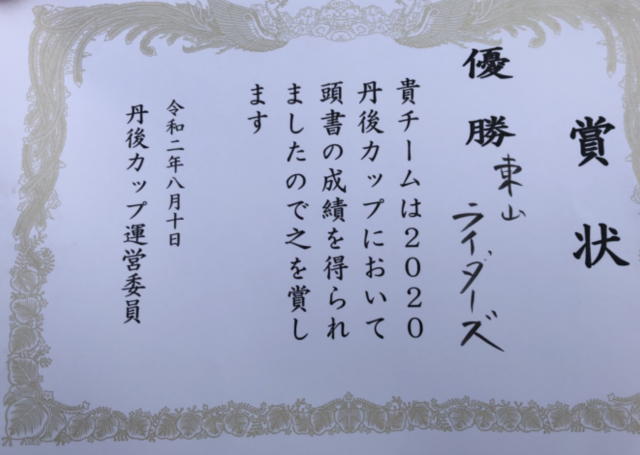 賞状
優勝
東山
ライダーズ
貴チームは2020
丹後カップにおいて
頭書の成績を得られ
ましたので之を賞し
ます
令和二年八月十日
丹後カップ運営委員